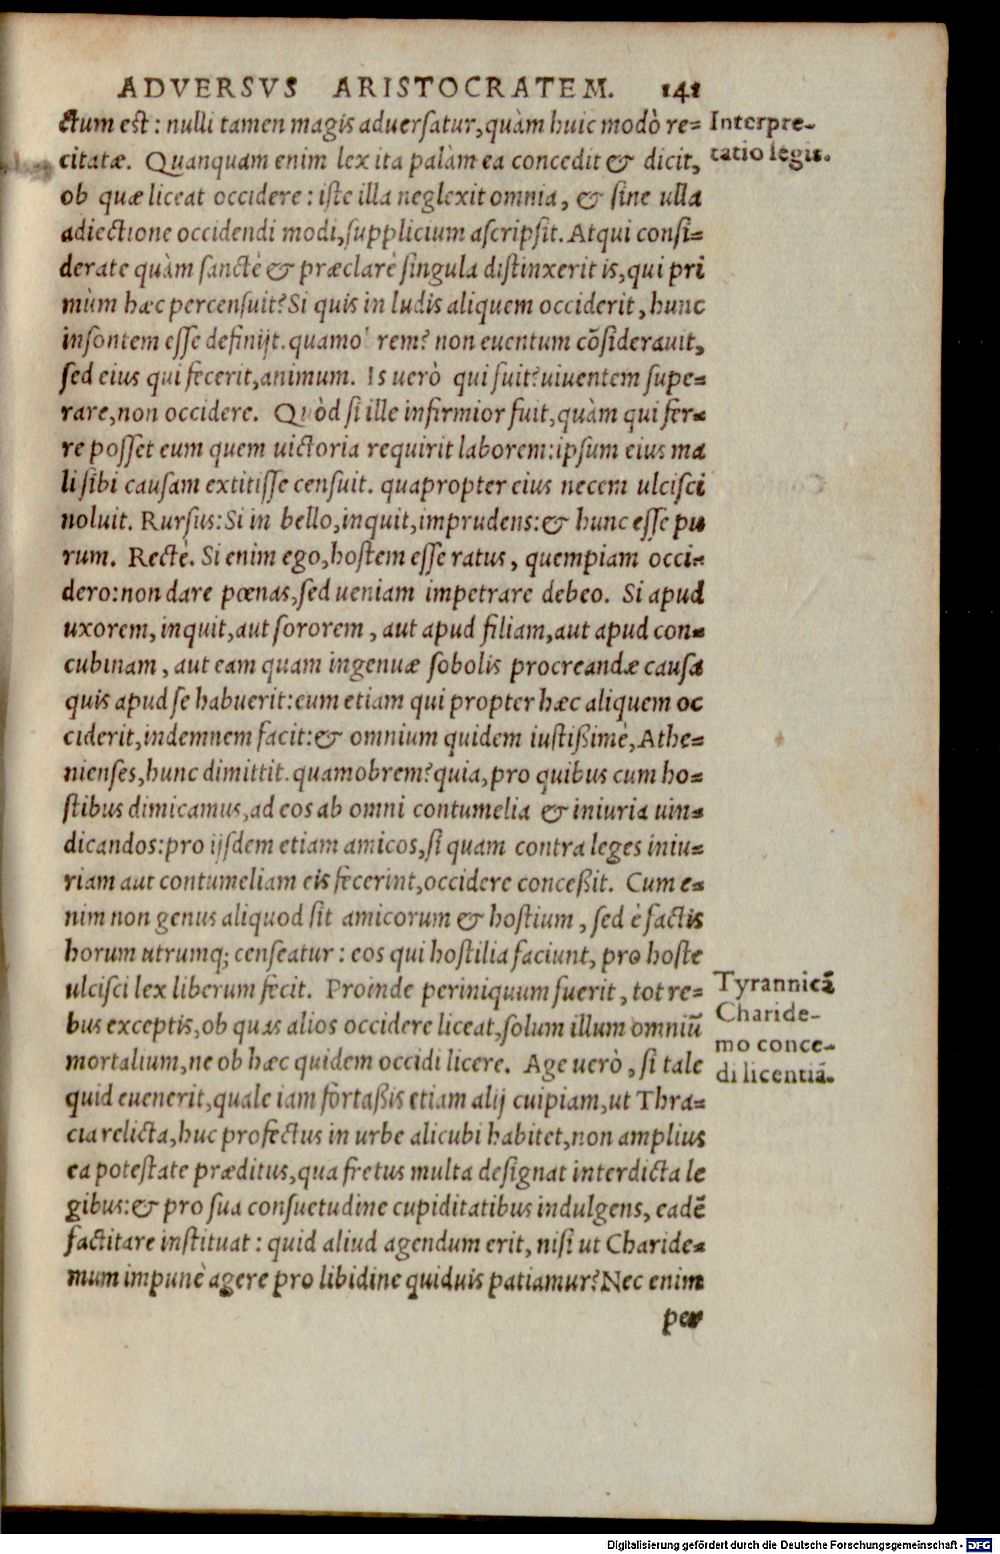 ADVERSVS ARISTOCRATEM. 141
ctum est: nulli tamen magis aduersatur, quàm huic modò re=
citatæ. Quanquam enim lex ita palàm ea concedit & dicit,
ob quæ liceat occidere: iste illa neglexit omnia, & sine ulla
adiectione occidendi modi, supplicium ascripsit. Atqui consi=
derate quàm sanctè & præclarè singula distinxerit is, qui pri
mùm hæc percensuit? Si quis in ludis aliquem occiderit, hunc
insontem esse definijt. quamo rem? non euentum cõsiderauit,
sed eius qui fecerit, animum. Is uerò qui fuit? uiuentem supe=
rare, non occidere. Quòd si ille infirmior fuit, quàm qui fer=
re posset eum quem uictoria requirit laborem: ipsum eius ma
li sibi causam extitisse censuit. quapropter eius necem ulcisci
noluit. Rursus: Si in bello, inquit, imprudens: & hunc esse pu
rum. Rectè. Si enim ego, hostem esse ratus, quempiam occi=
dero: non dare pœnas, sed ueniam impetrare debeo. Si apud
uxorem, inquit, aut sororem, aut apud filiam, aut apud con=
cubinam, aut eam quam ingenuæ sobolis procreandæ causa
quis apud se habuerit: eum etiam qui propter hæc aliquem oc
ciderit, indemnem facit: & omnium quidem iustißimè, Athe=
nienses, hunc dimittit. quamobrem? quia, pro quibus cum ho=
stibus dimicamus, ad eos ab omni contumelia & iniuria uin=
dicandos: pro ijsdem etiam amicos, si quam contra leges iniu=
riam aut contumeliam eis fecerint, occidere conceßit. Cum e=
nim non genus aliquod sit amicorum & hostium, sed è factis
horum utrumq; censeatur: eos qui hostilia faciunt, pro hoste
ulcisci lex liberum fecit. Proinde periniquum fuerit, tot re=
bus exceptis, ob quas alios occidere liceat, solum illum omniũ
mortalium, ne ob hæc quidem occidi licere. Age uerò, si tale
quid euenerit, quale iam fortaßis etiam alij cuipiam, ut Thra=
cia relicta, huc profectus in urbe alicubi habitet, non amplius
ea potestate præditus, qua fretus multa designat interdicta le
gibus: & pro sua consuetudine cupiditatibus indulgens, eadẽ
factitare instituat: quid aliud agendum erit, nisi ut Charide=
mum impunè agere pro libidine quiduis patiamur? Nec enim
per
Interpre-
tatio legis.
Tyrannicã
Charide-
mo conce-
di licentiã.
Digitalisierung gefördert durch die Deutsche Forschungsgemeinschaft - DFG